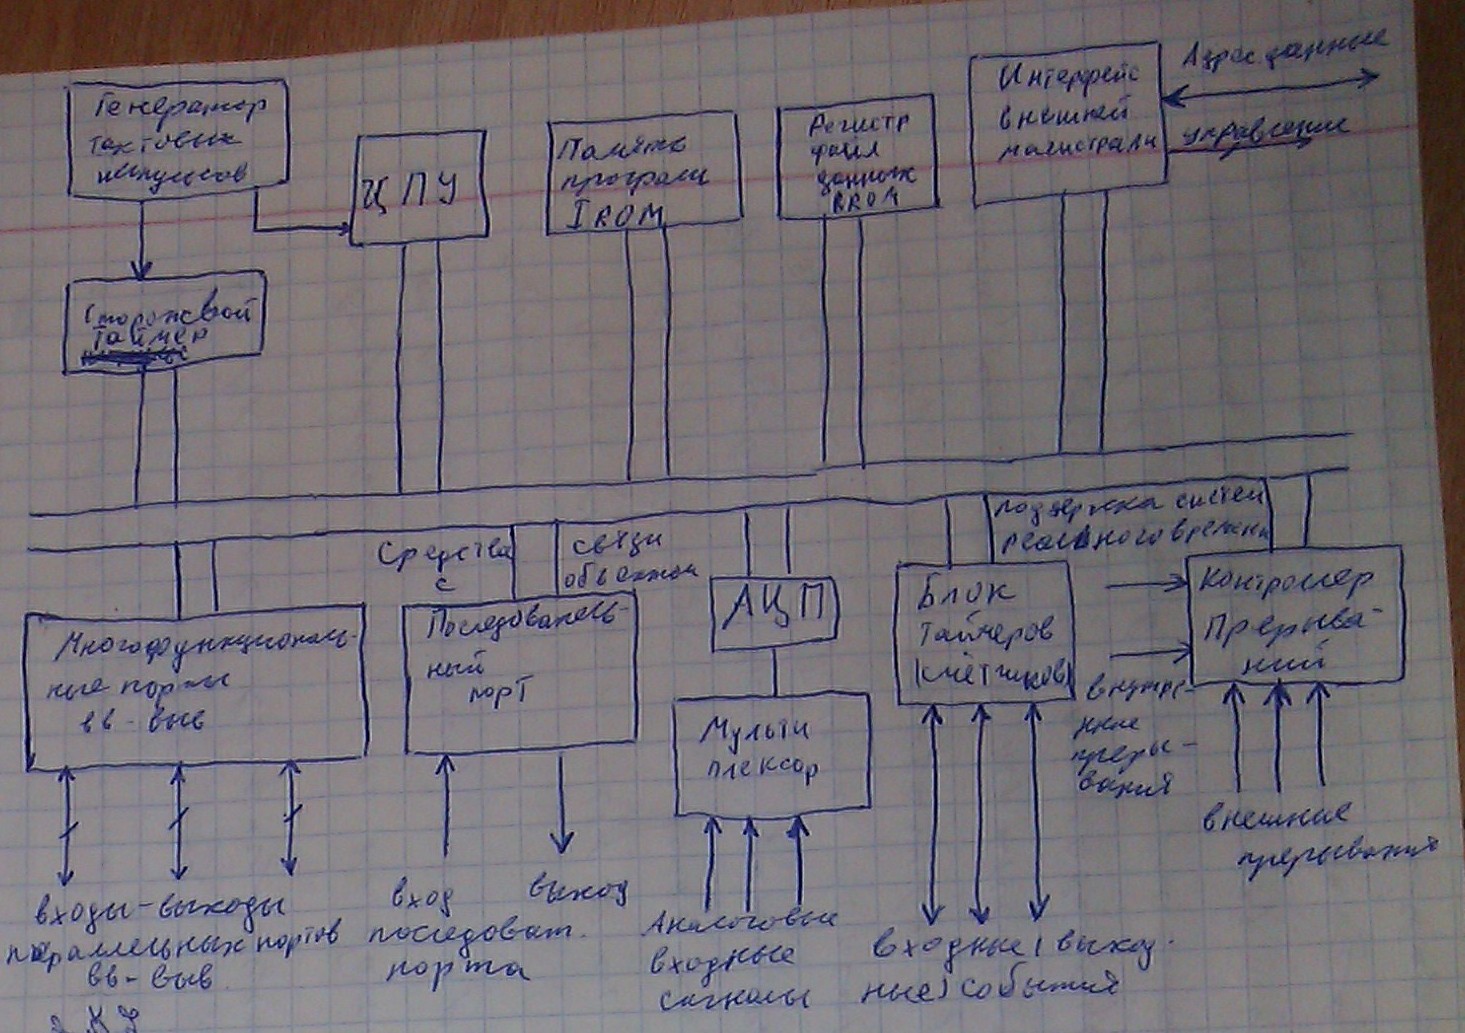 Генератор
тактовых
импульсов
ЦПУ
Память
програм
IROM
Регистр
файл
данных
RROM
Интерфейс
внешней
магистрали
Адрес данные
управление
Сторожевой
таймер
Средства
с
связи
объектом
поддержка систем
реального времени
Многофункциональ-
ные порты
вв-выв
Последователь-
ный
порт
АЦП
Мульти
плексор
Блок
таймеров
(счётчиков)
Контроллер
Прерыва-
ний
внутре-
нние
преры-
вания
внешние
прерывания
входы-выходы
параллельных портов
вв-выв
вход
выход
последоват.
порта
Аналоговые
входные
сигналы
входные (выход-
ные) события